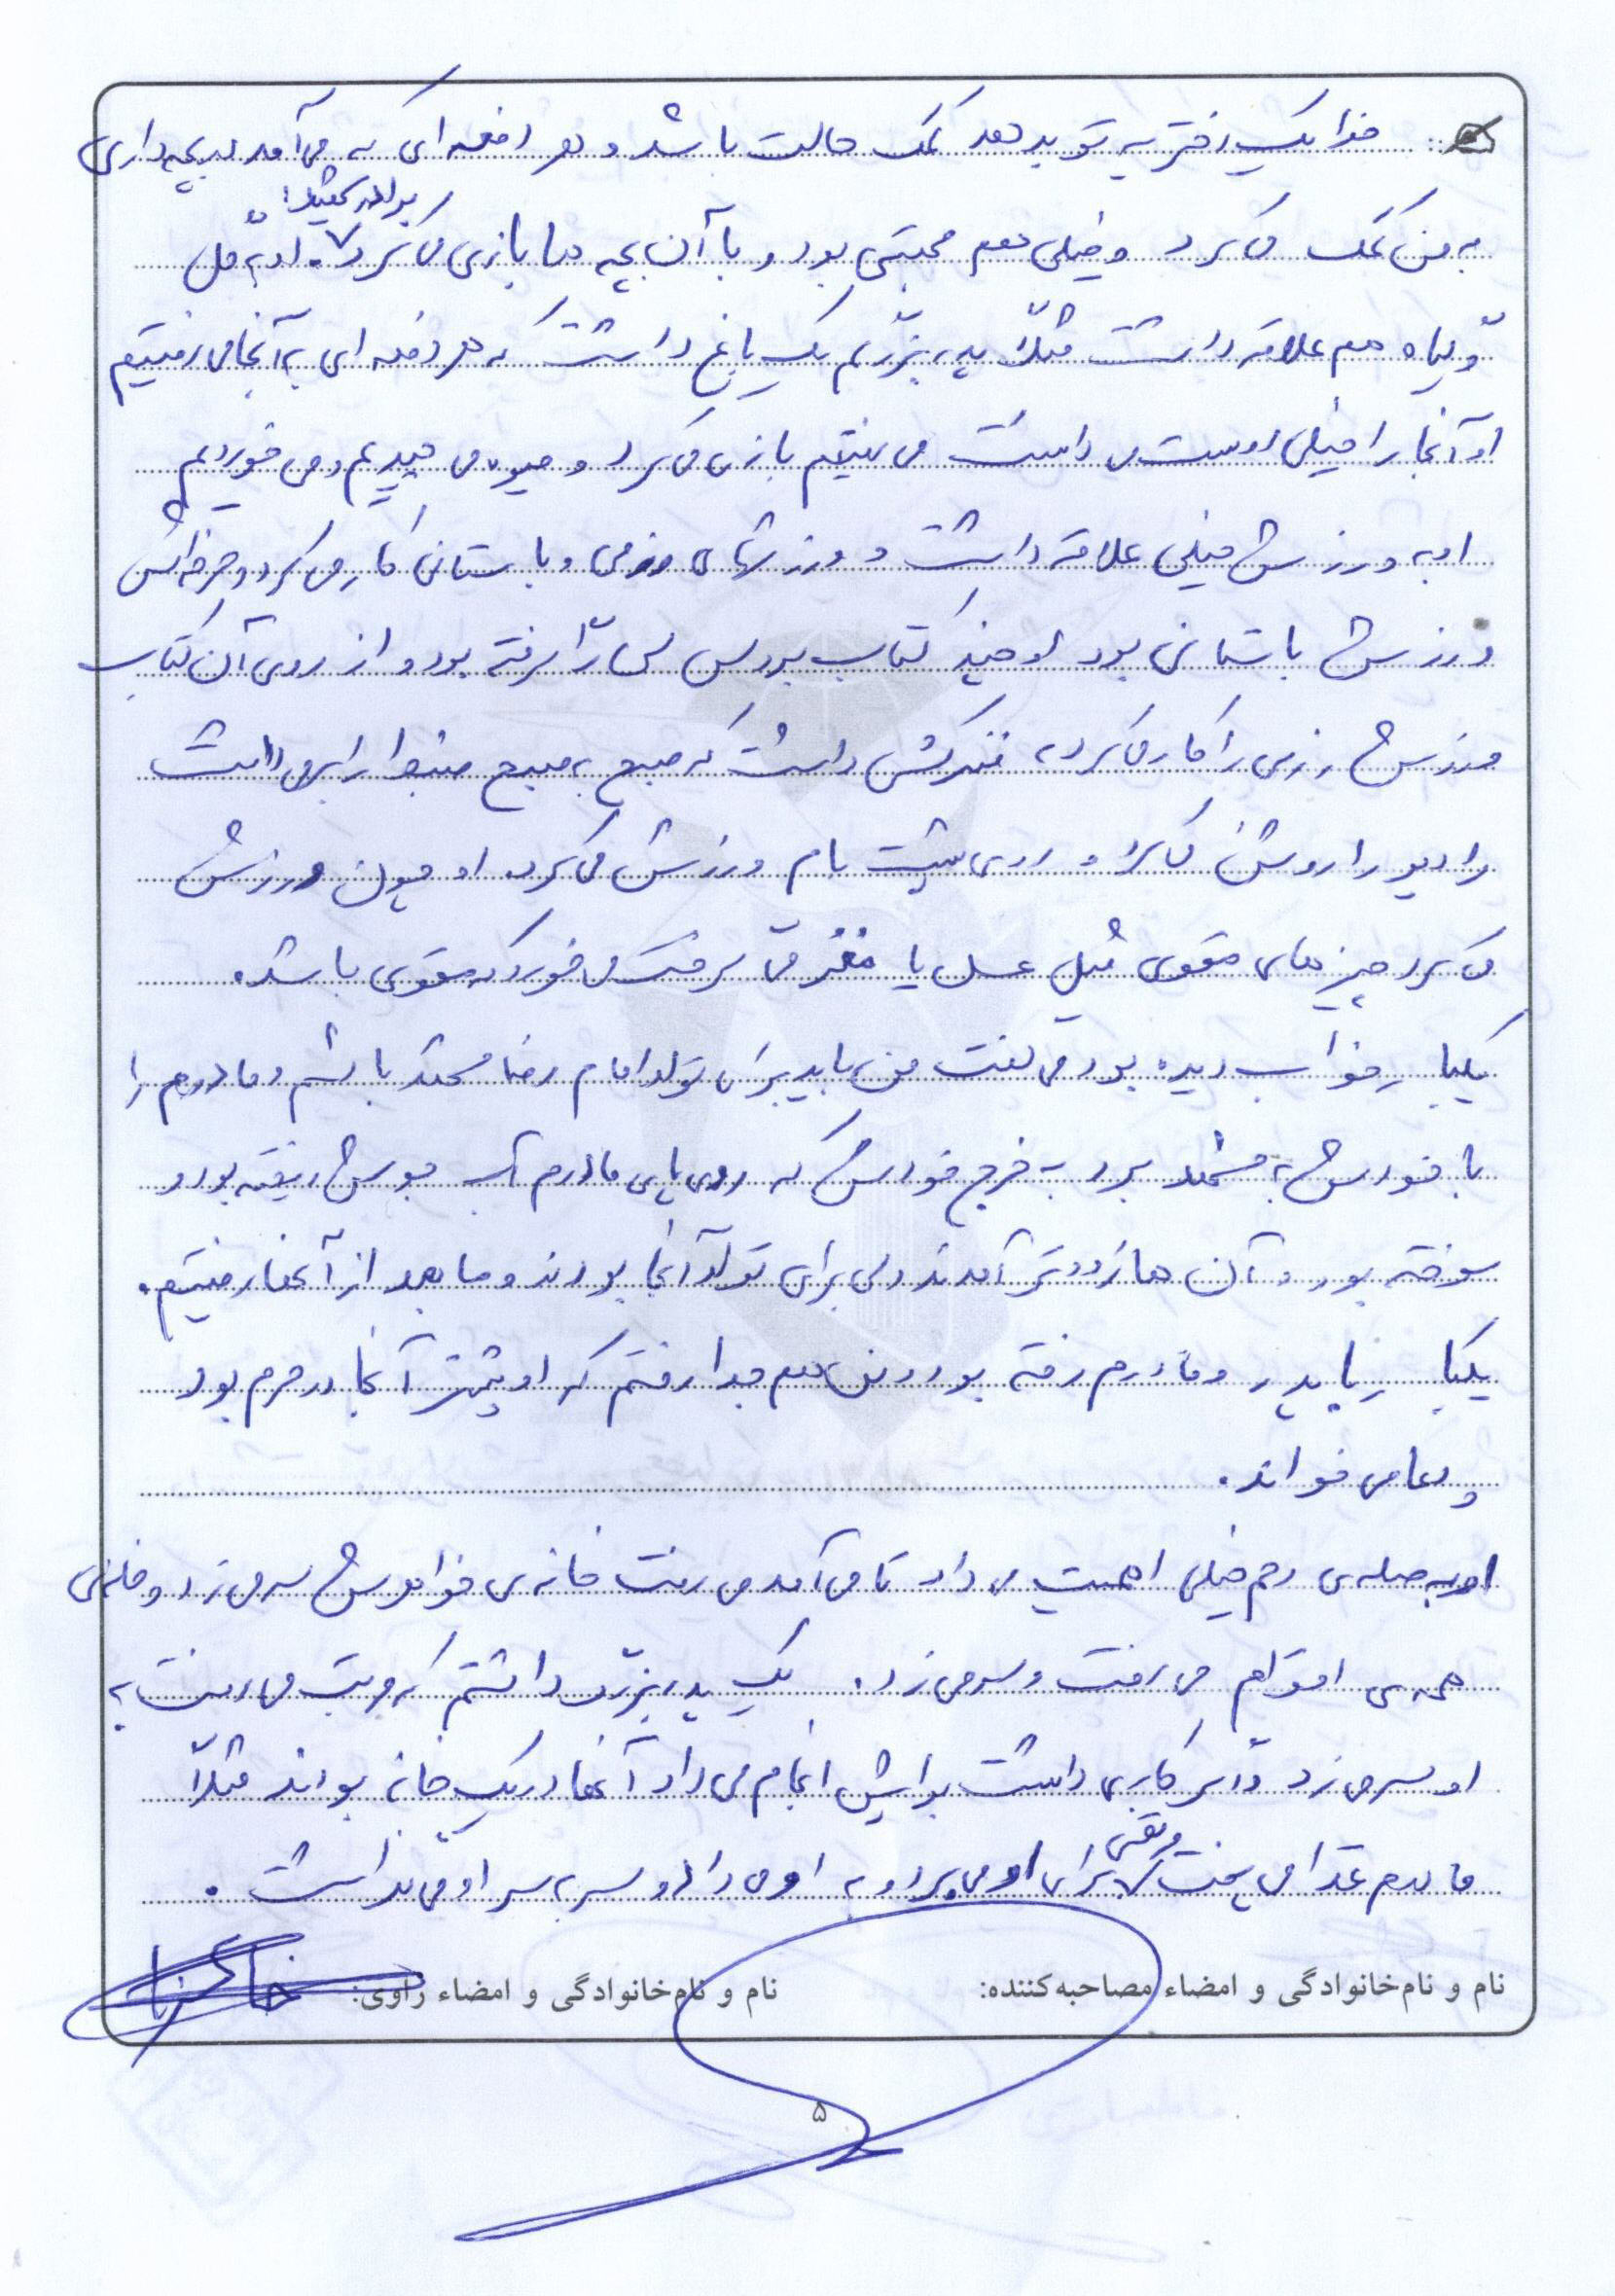 خدا یک دختر به تو بدهد کمک حالت باشد و هر دفعه‌ای که می‌آمد در بچه‌داری
به من کمک می‌کرد و خیلی هم محبتی بود و با آن بچه ها بازی می‌کرد. او به گل
و گیاه هم علاقه داشت مثلاً پدربزرگم یک باغ داشت که هر دفعه ای به آنجا می‌رفتیم
او آنجا را خیلی دوست می داشت می‌رفتیم بازی می‌کرد و میوه می چیدیم و می خوردیم
او به ورزش خیلی علاقه داشت و ورزشهای رزمی و باستانی کار می کرد و حرفه‌اش
ورزش باستانی بود او چند کتاب بروس لی را گرفته بود و از روی آن کتاب
ورزش رزمی را کار می‌کرد، فنرکش داشت که صبح به صبح ضبط را برمی داشت
رادیو را روشن می‌کرد و روی پشت بام ورزش می‌کرد. او چون ورزش
می‌کرد چیزهای مقوی مثل عسل یا مغز می گرفت می خورد که مقوی باشد.
یکبار خواب دیده بود می گفت من باید برای تولد امام رضا مشهد باشم و مادرم را
با خودش به مشهد برد به خرج خودش که روی پای مادرم آب جوش ریخته بود و
سوخته بود و آن ها زودتر آمدند ولی برای تولد آنجا بودند و ما بعد از آنها رفتیم.
یکبار با پدر و مادرم رفته بود و من هم جدا رفتم که او بیشتر آنجا در حرم بود
و دعا می خواند.
او به صله‌ی رحم خیلی اهمیت می داد تا می‌آمد می رفت خانه‌ی خواهرش سر می زد و خانه‌ی
همه‌ی اقوام می رفت و سر می زد. یک پدربزرگ داشتم که مرتب می رفت به
او سر می زد و اگر کاری داشت برایش انجام می داد آنها در یک خانه بودند مثلاً
مادرم غذا می پخت وقتی برای او می برد و به او می داد و سر به سر او می گذاشت.
نام و نام‌خانوادگی و امضاء مصاحبه‌کننده: نام و نام‌خانوادگی و امضاء راوی:
۵